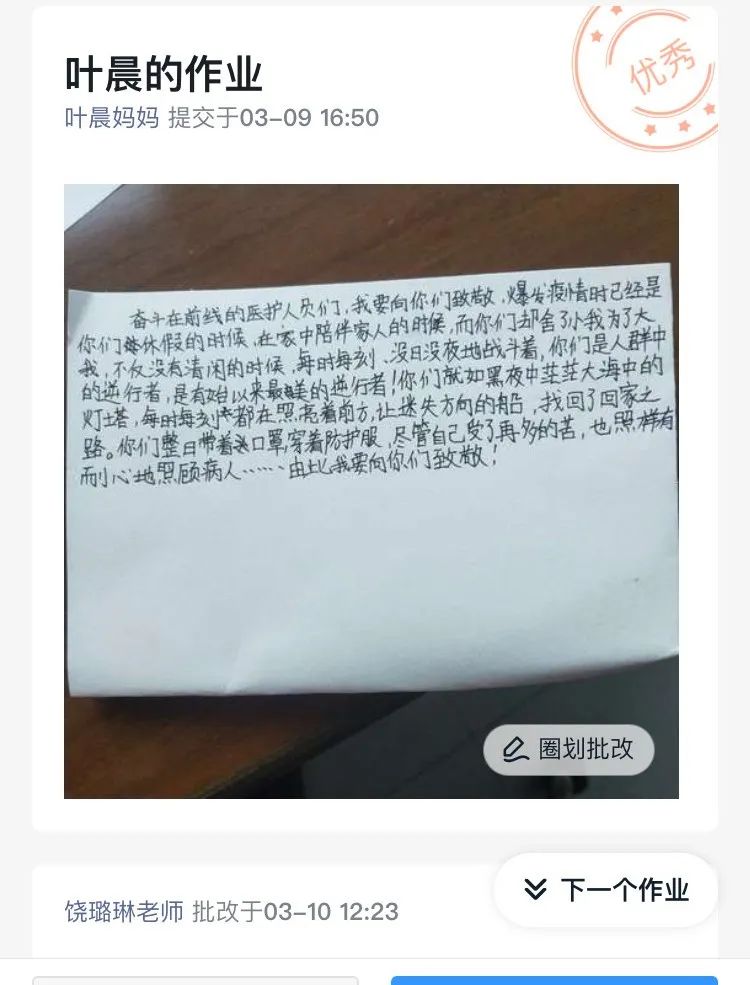 叶晨的作业
优秀
叶晨妈妈 提交于03-09 16:50
奋斗在前线的医护人员们，我要向你们致敬，爆发疫情时已经是
你们休假的时候，在家中陪伴家人的时候，而你们却舍了小我为了大
我，不仅没有清闲的时候，每时每刻、没日没夜地战斗着，你们是人群中
的逆行者，是有始以来最美的逆行者！你们就如黑夜中茫茫大海中的
灯塔，每时每刻都在照亮着前方，让迷失方向的船，找回了回家之
路。你们整日带着口罩，穿着防护服，尽管自己受了再多的苦，也照样有
耐心地照顾病人……由此我要向你们致敬！
圈划批改
下一个作业
饶璐琳老师 批改于03-10 12:23